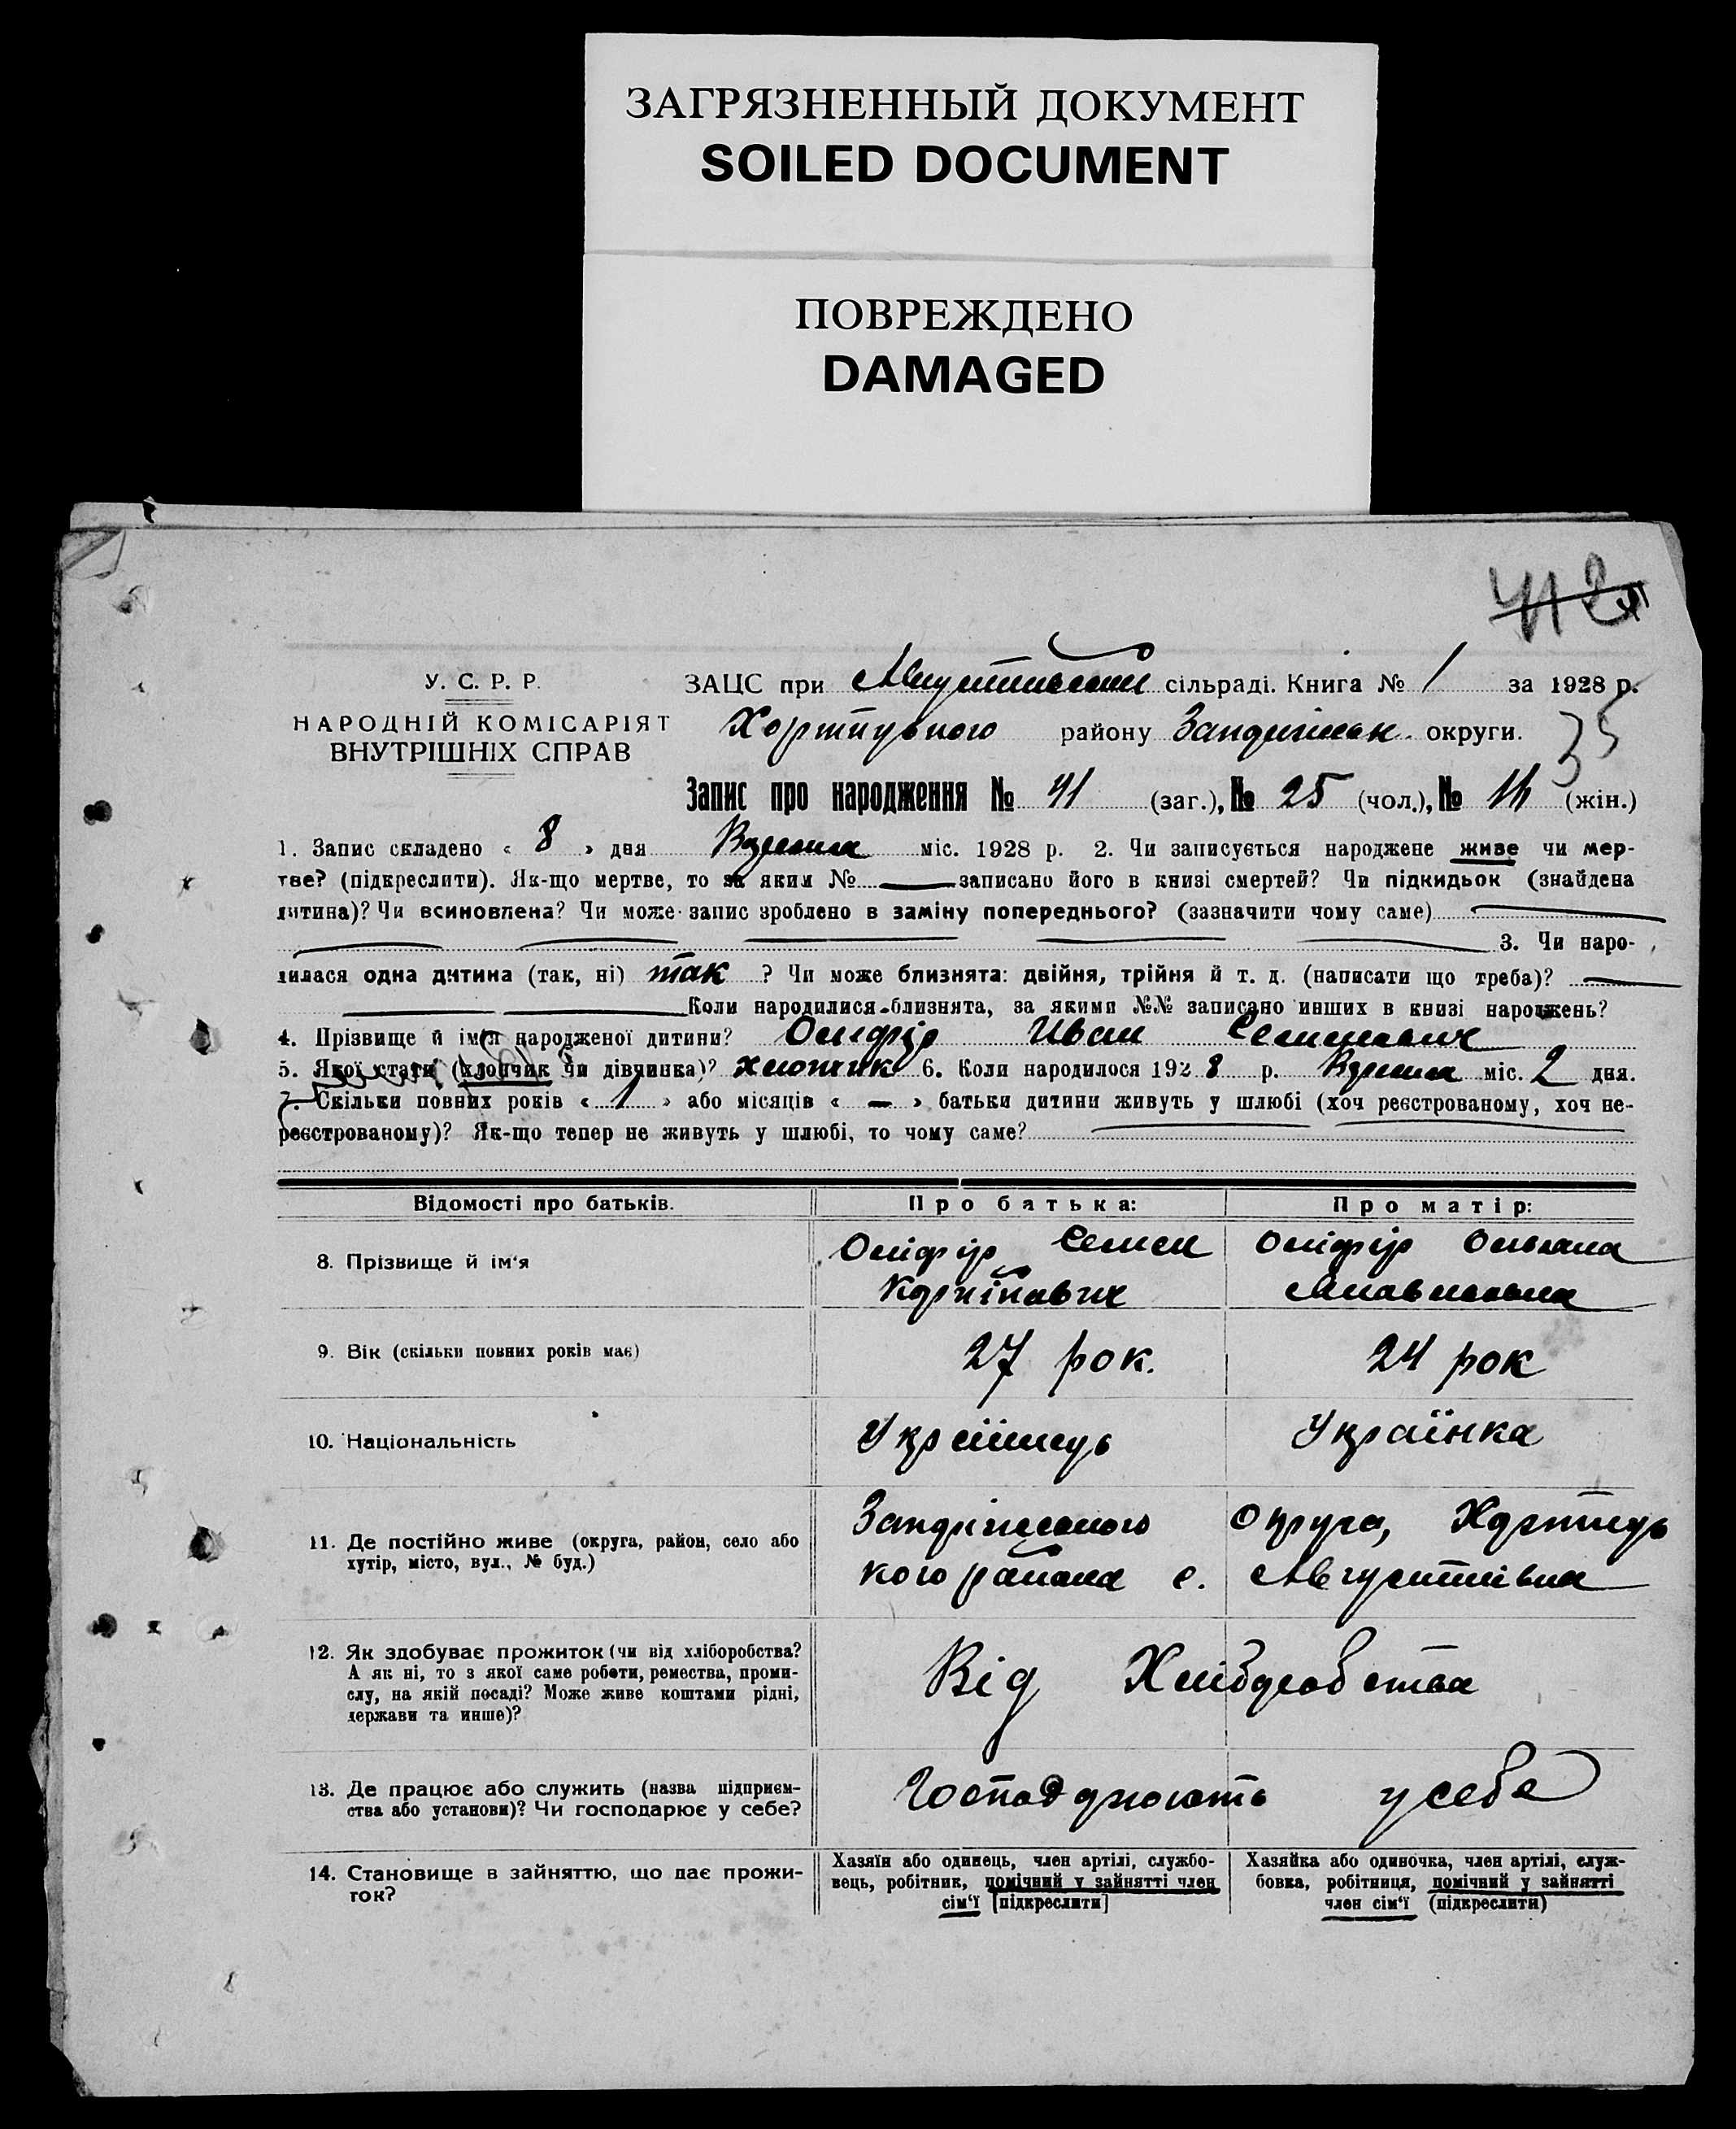 ЗАГРЯЗНЕННЫЙ ДОКУМЕНТ
SOILED DOCUMENT
ПОВРЕЖДЕНО
DAMAGED
У. С. Р. Р.
НАРОДНІЙ КОМІСАРІЯТ
ВНУТРІШНІХ СПРАВ
ЗАЦС при сільраді. Книга № 1 за 1928 р.
району округи.
35
Запис про народження № 41 (заг.), № 25 (чол.), № 16 (жін.)
1. Запис складено « 8 » дня міс. 1928 р. 2. Чи записується народжене живе чи мер-
тве? (підкреслити). Як-що мертве, то за яким № записано його в книзі смертей? Чи підкидьок (знайдена
дитина)? Чи всиновлена? Чи може запис зроблено в заміну попереднього? (зазначити чому саме)
3. Чи наро-
дилася одна дитина (так, ні) так ? Чи може близнята: двійня, трійня й т. д. (написати що треба)?
Коли народилися близнята, за якими №№ записано инших в книзі народжень?
4. Прізвище й ім'я народженої дитини? Оліфір Иван Семенович
5. Якої стати (хлопчик чи дівчинка)? хлопчик 6. Коли народилося 1928 р. міс. 2 дня.
7. Скільки повних років « 1 » або місяців « — » батьки дитини живуть у шлюбі (хоч реєстрованому, хоч не-
реєстрованому)? Як-що тепер не живуть у шлюбі, то чому саме?
Відомості про батьків. Про батька: Про матір:
8. Прізвище й ім'я
Оліфір Семен Оліфір
Корнійович
9. Вік (скільки повних років має) 27 рок. 24 рок
10. Національність Українець Українка
11. Де постійно живе (округа, район, село або
хутір, місто, вул., № буд.)
округа,
кого района с. Августинівка
12. Як здобуває прожиток (чи від хліборобства?
А як ні, то з якої саме роботи, ремества, проми-
слу, на якій посаді? Може живе коштами рідні,
держави та инше)?
Від Хліборобства
13. Де працює або служить (назва підприєм-
ства або установи)? Чи господарює у себе?
у себе
14. Становище в зайняттю, що дає прожи-
ток?
Хазяїн або одинець, член артілі, службо-
вець, робітник, помічний у зайнятті член
сім'ї [підкреслити]
Хазяйка або одиночка, член артілі, служ-
бовка, робітниця, помічний у зайнятті
член сім'ї (підкреслити)